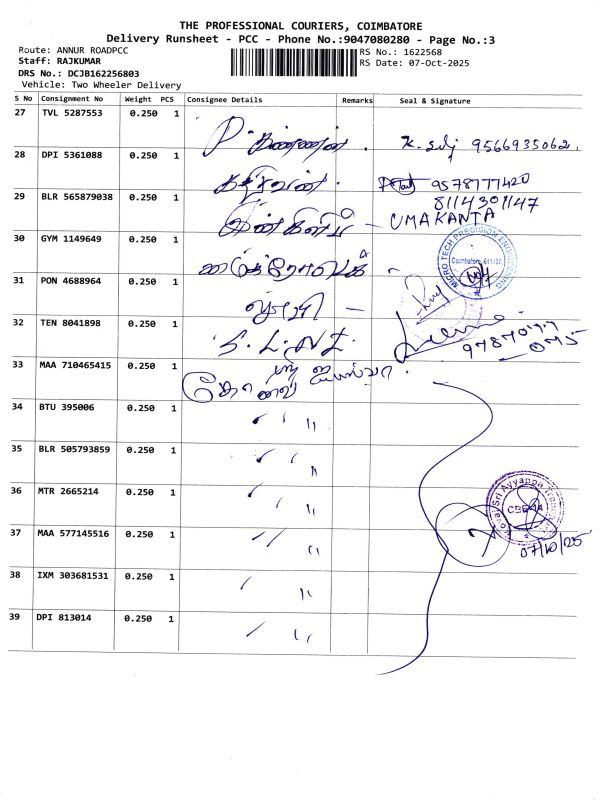 THE PROFESSIONAL COURIERS, COIMBATORE
Delivery Runsheet - PCC - Phone No.:9047080280 - Page No.:3
Route: ANNUR ROADPCC
RS No.: 1622568
Staff: RAJKUMAR
RS Date: 07-Oct-2025
DRS No.: DCJB162256803
Vehicle: Two Wheeler Delivery
S No Consignment No Weight PCS Consignee Details Remarks Seal & Signature
27 TVL 5287553 0.250 1 P. கண்ணன். 9566935062.
28 DPI 5361088 0.250 1 கதிரவன். 9578177420
8114301147
29 BLR 565879038 0.250 1 UMAKANTA
30 GYM 1149649 0.250 1
MICRO TECH PRECISION ENGINEERING
Coimbatore
31 PON 4688964 0.250 1
32 TEN 8041898 0.250 1 S.L.N.I.
33 MAA 710465415 0.250 1 கோவை ஸ்ரீ ஐயப்பா.
34 BTU 395006 0.250 1 ' ' ''
35 BLR 505793859 0.250 1 ' ' ''
36 MTR 2665214 0.250 1 ' ' ''
Kovai Sri Ayyappan
37 MAA 577145516 0.250 1 ' ' ''
07/10/25
38 IXM 303681531 0.250 1 ' ''
39 DPI 813014 0.250 1 ' ''